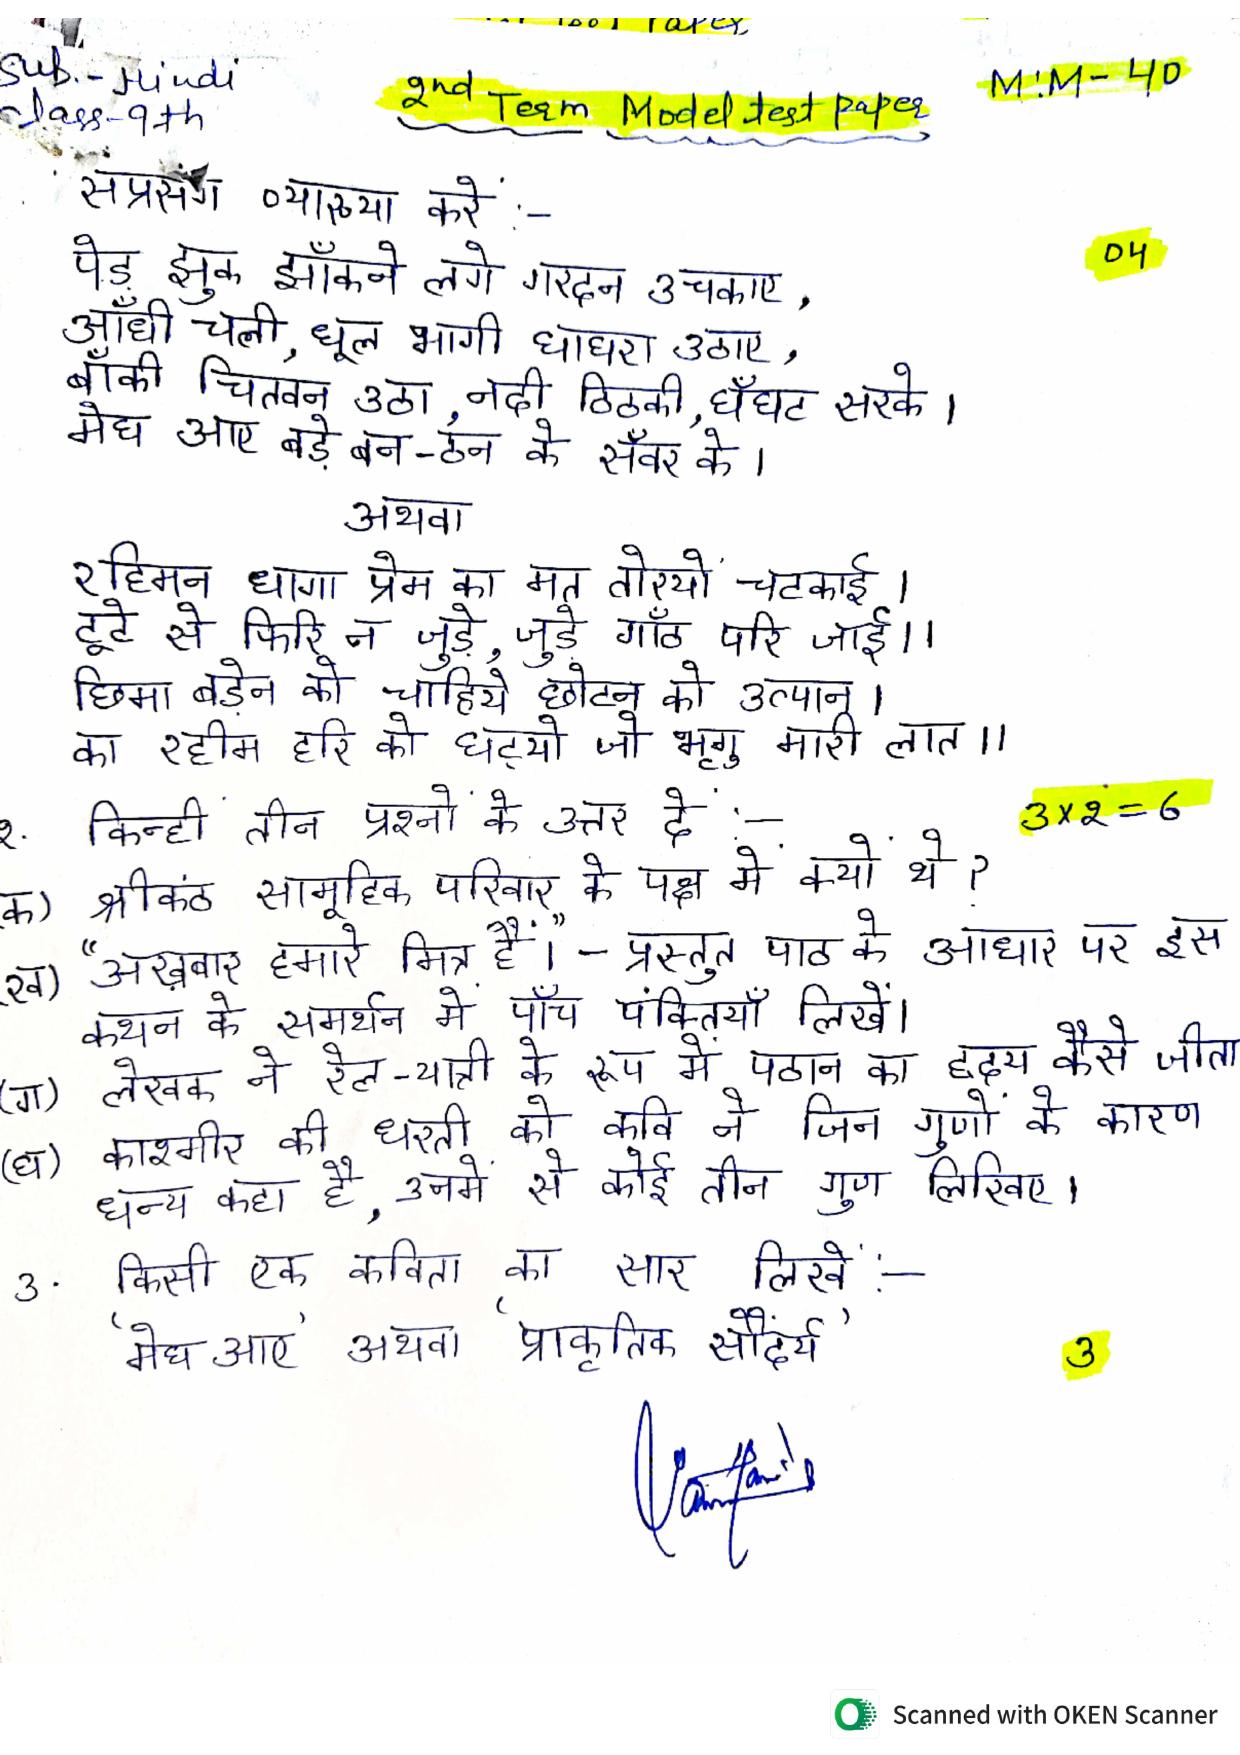 Sub.- Hindi
Class-9th
2nd Term Model test paper
M.M-40
सप्रसंग व्याख्या करें :-
04
पेड़ झुक झाँकने लगे गरदन उचकाए,
आँधी चली, धूल भागी घाघरा उठाए,
बाँकी चितवन उठा, नदी ठिठकी, घूँघट सरके।
मेघ आए बड़े बन-ठन के सँवर के।
अथवा
रहिमन धागा प्रेम का मत तोरयों चटकाई।
टूटे से फिरि न जुड़े, जुड़े गाँठ परि जाई।।
छिमा बड़ेन को चाहिये छोटन को उत्पान।
का रहीम हरि को घट्यो जो भृगु मारी लात।।
२. किन्हीं तीन प्रश्नों के उत्तर दें :-
3x2=6
(क) श्रीकंठ सामूहिक परिवार के पक्ष में क्यों थे?
(ख) "अख़बार हमारे मित्र हैं।" - प्रस्तुत पाठ के आधार पर इस
कथन के समर्थन में पाँच पंक्तियाँ लिखें।
(ग) लेखक ने रेल-यात्री के रूप में पठान का हृदय कैसे जीता
(घ) काश्मीर की धरती को कवि ने जिन गुणों के कारण
धन्य कहा है, उनमें से कोई तीन गुण लिखिए।
3. किसी एक कविता का सार लिखें :-
'मेघ आए' अथवा 'प्राकृतिक सौंदर्य'
3
Scanned with OKEN Scanner